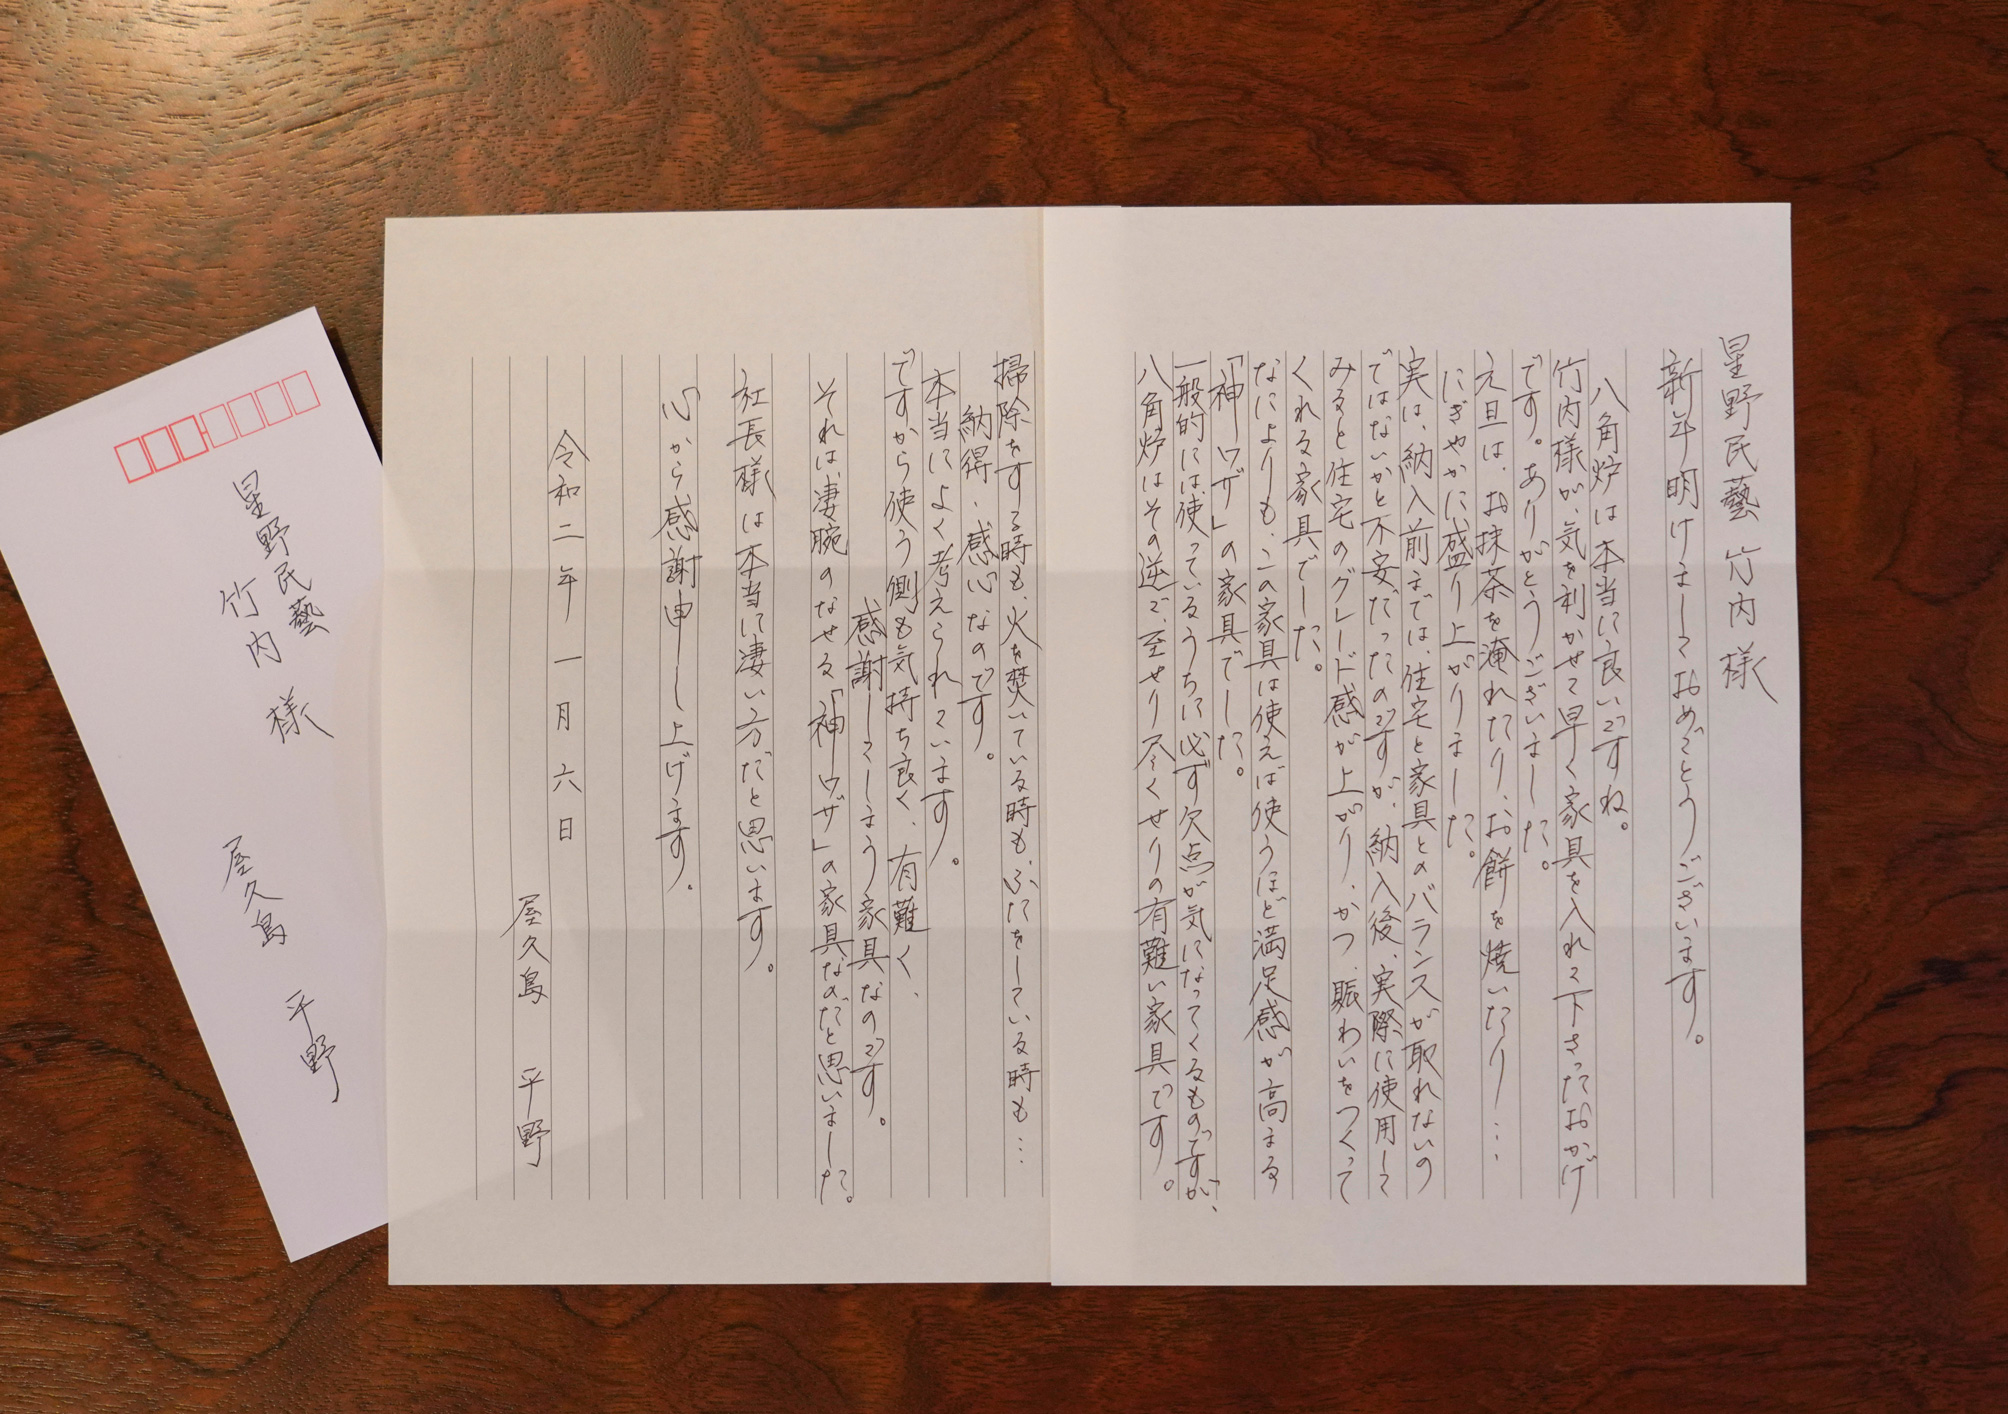 星野民藝 竹内様
新年明けましておめでとうございます。
八角炉は本当に良いですね。
竹内様が、気を利かせて早く家具を入れて下さったおかげ
です。ありがとうございました。
元旦は、お抹茶を淹れたり、お餅を焼いたり…
にぎやかに盛り上がりました。
実は、納入前までは、住宅と家具とのバランスが取れないの
ではないかと不安だったのですが、納入後、実際に使用して
みると住宅のグレード感が上がり、かつ、賑わいをつくって
くれる家具でした。
なによりも、この家具は使えば使うほど満足感が高まる
「神ワザ」の家具でした。
一般的には、使っているうちに必ず欠点が気になってくるものですが、
八角炉はその逆で、至せり尽くせりの有難い家具です。
掃除をする時も、火を焚いている時も、ふたをしている時も…
納得・感心なのです。
本当によく考えられています。
ですから使う側も気持ち良く、有難く、
感謝してしまう家具なのです。
それは、凄腕のなせる「神ワザ」の家具なのだと思いました。
社長様は本当に凄い方だと思います。
心から感謝申し上げます。
令和二年一月六日
屋久島 平野
星野民藝
竹内様
屋久島 平野